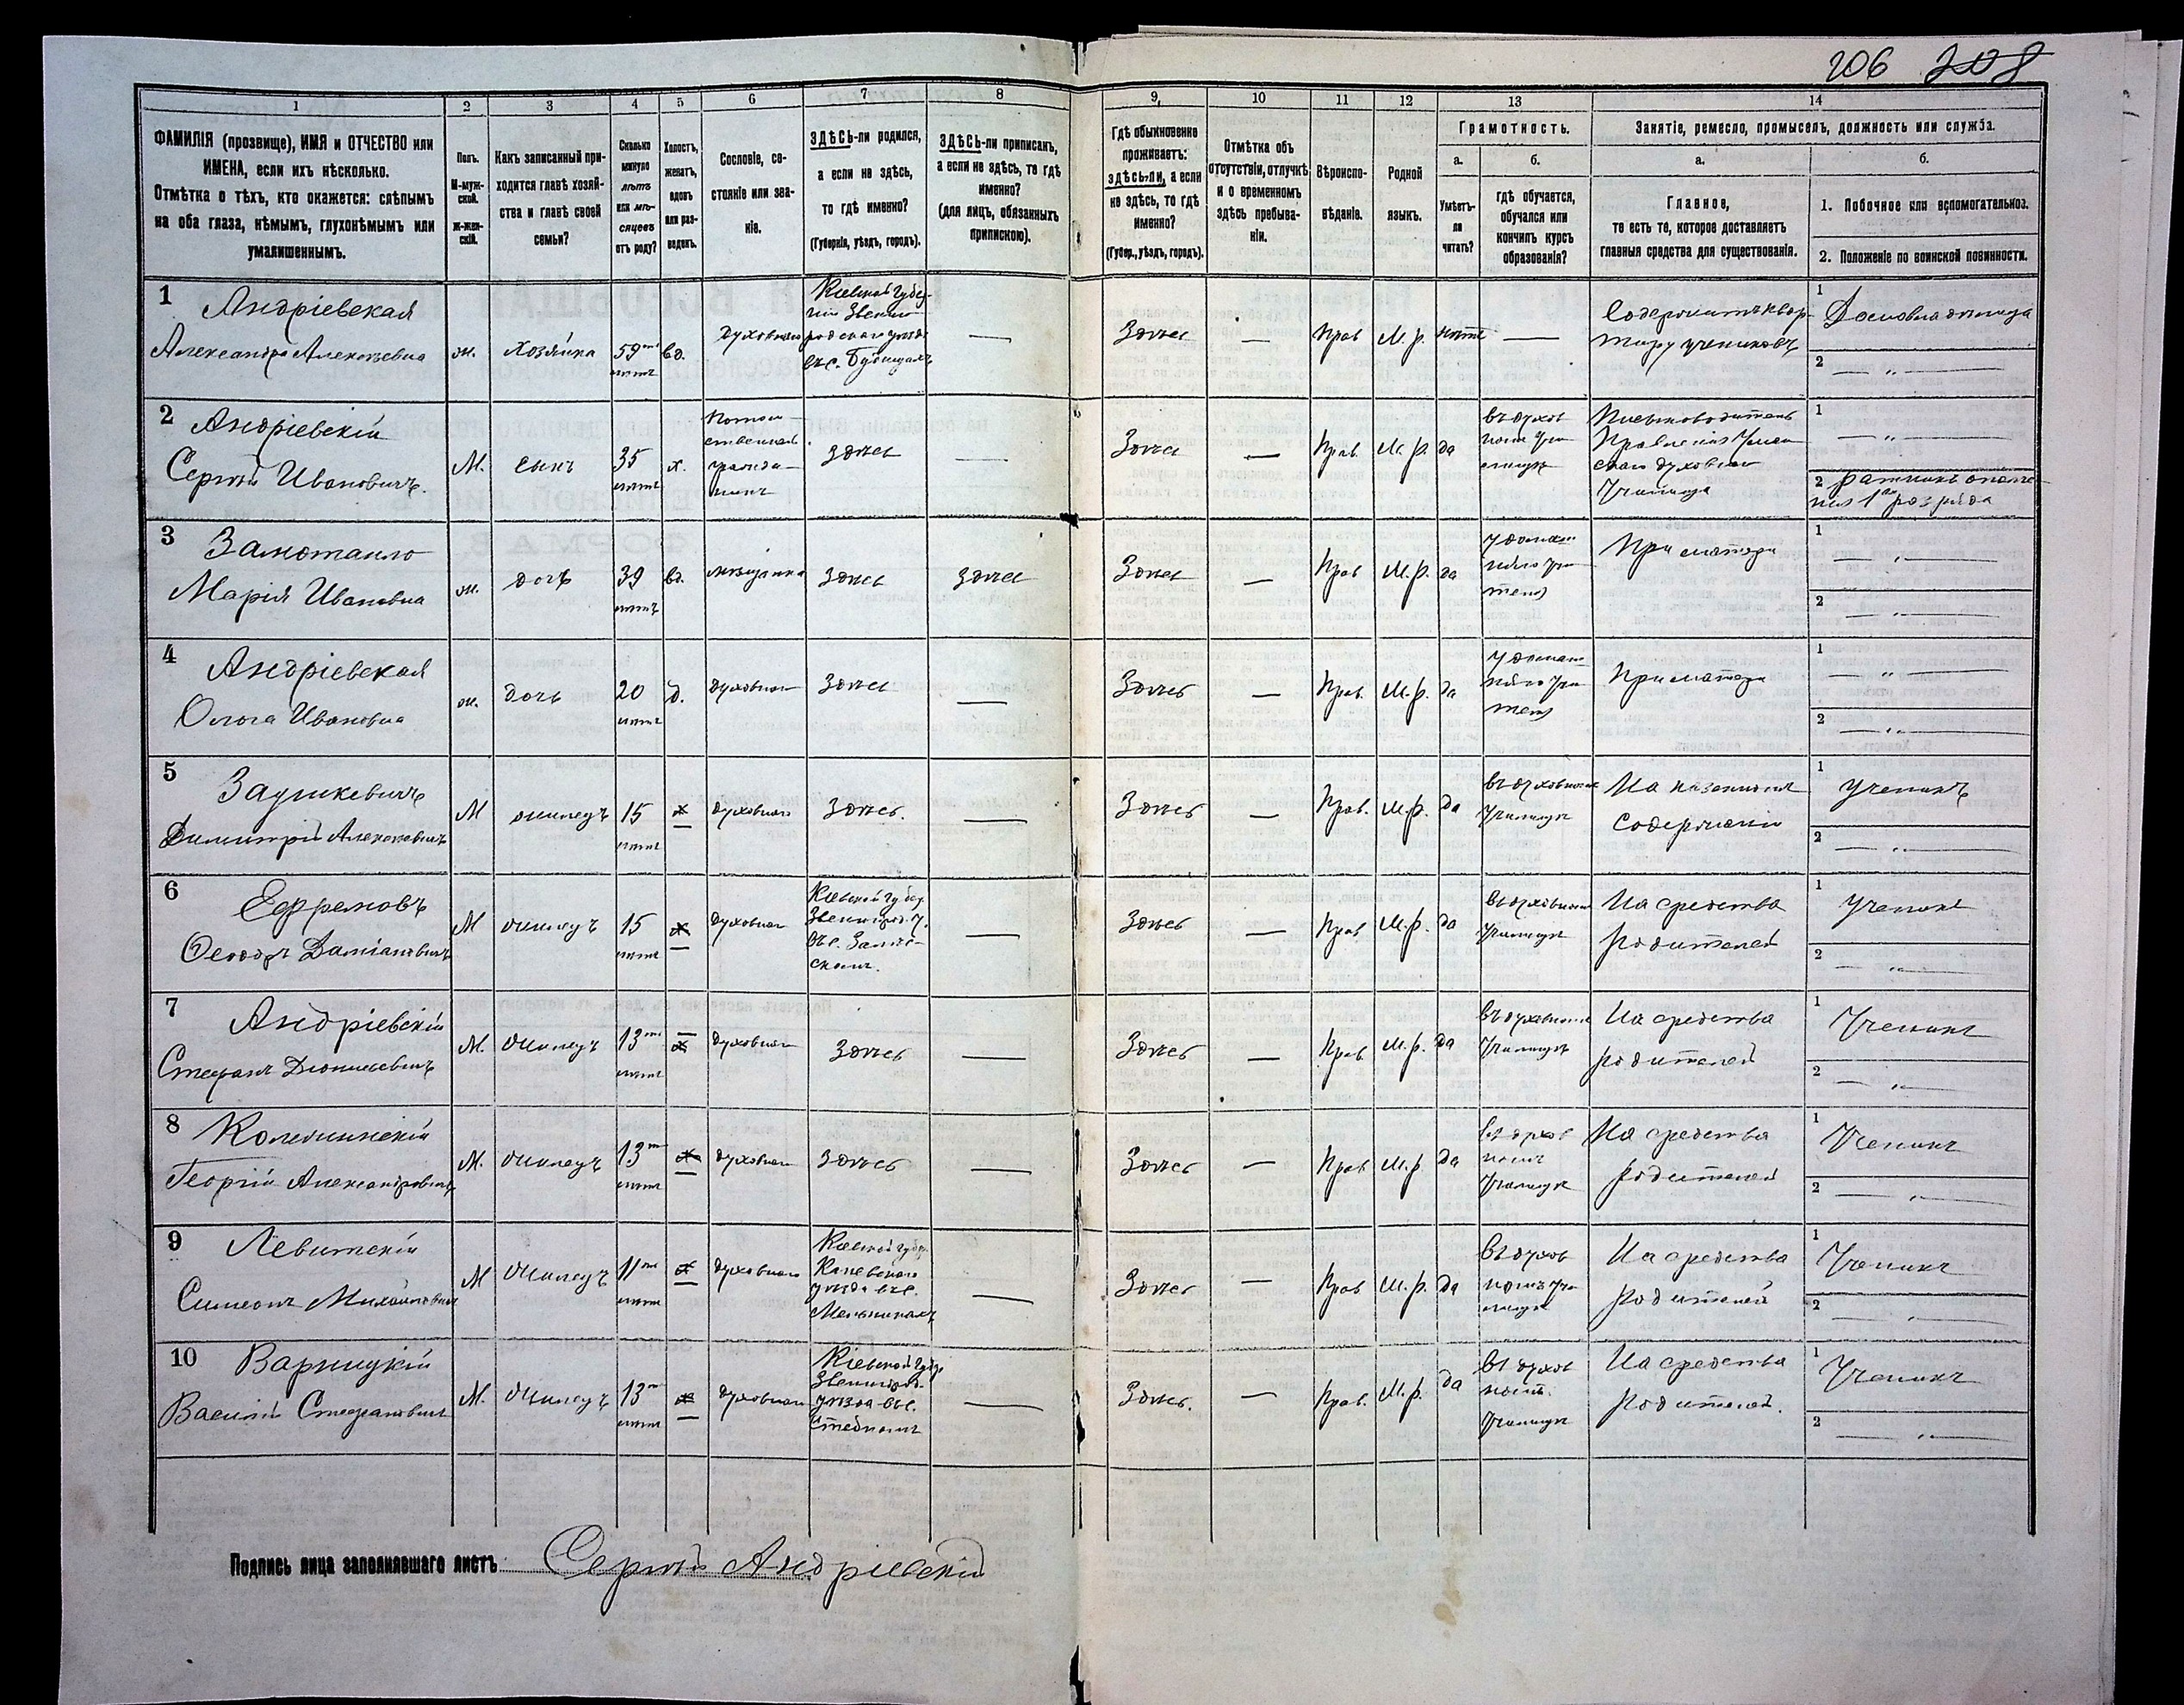 206 208
1
2
3
4
5
6
7
8
9
10
11
12
13
14
ФАМИЛІЯ (прозвище), ИМЯ и ОТЧЕСТВО или
ИМЕНА, если ихъ нѣсколько.
Отмѣтка о тѣхъ, кто окажется: слѣпымъ
на оба глаза, нѣмымъ, глухонѣмымъ или
умалишеннымъ.
Полъ.
М-муж-
ской.
Ж-жен-
скій.
Какъ записанный при-
ходится главѣ хозяй-
ства и главѣ своей
семьи?
Сколько
минуло
лѣтъ
или мѣ-
сяцевъ
отъ роду?
Холостъ,
женатъ,
вдовъ
или раз-
веденъ.
Сословіе, со-
стояніе или зва-
ніе.
ЗДѢСЬ-ли родился,
а если не здѣсь,
то гдѣ именно?
(Губернія, уѣздъ, городъ).
ЗДѢСЬ-ли приписанъ,
а если не здѣсь, то гдѣ
именно?
(для лицъ, обязанныхъ
припискою).
Гдѣ обыкновенно
проживаетъ:
здѣсь-ли, а если
не здѣсь, то гдѣ
именно?
(Губер., уѣздъ, городъ).
Отмѣтка объ
отсутствіи, отлучкѣ
и о временномъ
здѣсь пребыва-
ніи.
Вѣроиспо-
вѣданіе.
Родной
языкъ.
Грамотность.
а.
Умѣетъ-
ли
читать?
б.
гдѣ обучается,
обучался или
кончилъ курсъ
образованія?
Занятіе, ремесло, промыселъ, должность или служба.
а.
Главное,
то есть то, которое доставляетъ
главныя средства для существованія.
б.
1. Побочное или вспомогательное.
2. Положеніе по воинской повинности.
1 Андріевская
Александра Алексѣевна
ж.
Хозяйка
59
лѣтъ
вд.
Духовнаго
Кіевской Губер-
ніи Звениго
родскаго уѣзда
въ с.
—
Здѣсь
—
Прав
М. р.
нѣтъ
—
Содержитъ квар-
тиру учениковъ
1
2 — „ —
2 Андріевскій
Сергѣй Ивановичъ.
М.
сынъ
35
лѣтъ
х.
Потом
ственный
гражда
нинъ
здѣсь
—
Здѣсь
—
Прав.
М. р.
да
въ духов
номъ Учи
лищѣ
Письмоводитель
Правленія Уман
скаго духовнаго
Училища
1 — „ —
2 ратникъ ополче
нія 1го разряда
3 Замотайло
Марія Ивановна
ж.
дочь
39
лѣтъ
вд.
мѣщанка
здѣсь
здѣсь
Здѣсь
—
Прав
М. р.
да
у домаш
няго учи
теля
При матери
1 — „ —
2 — „ —
4 Андріевская
Ольга Ивановна
ж.
дочь
20
лѣтъ
д.
Духовнаго
Здѣсь
—
Здѣсь
—
Прав.
М. р.
да
у домаш
няго учи
теля
При матери
1 — „ —
2 — „ —
5
Димитрій Алексѣевичъ
М
жилецъ
15
лѣтъ
х
Духовнаго
Здѣсь.
—
Здѣсь
—
Прав.
М. р.
да
въ духовномъ
Училищѣ
На казенномъ
содержаніи
1 Ученикъ
2 — „ —
6 Ефремовъ
Ѳеодоръ Даміановичъ
М
жилецъ
15
лѣтъ
х
Духовнаго
Кіевской Губер.
Звенигород. у.
въ с.
—
Здѣсь
—
Прав
М. р.
да
въ духовномъ
Училищѣ
На средства
родителей
1 Ученикъ
2 — „ —
7 Андріевскій
Стефанъ Діонисьевичъ
М.
жилецъ
13
лѣтъ
х
Духовнаго
Здѣсь
—
Здѣсь
—
Прав
М. р.
да
въ духовномъ
Училищѣ
На средства
родителей
1 Ученикъ
2 — „ —
8
Георгій Александровичъ
М.
жилецъ
13
лѣтъ
х
Духовнаго
Здѣсь
—
Здѣсь
—
Прав
М. р.
да
въ духов
номъ
Училищѣ
На средства
родителей
1 Ученикъ
2 — „ —
9 Левитскій
Симеонъ Михайловичъ
М
жилецъ
11
лѣтъ
х
Духовнаго
Кіевской Губер.
Каневскаго
уѣзда въ с.
—
Здѣсь
—
Прав
М. р.
да
въ духов
номъ Учи
лищѣ
На средства
родителей
1 Ученикъ
2 — „ —
10 Варницкій
Василій Стефановичъ
М.
жилецъ
13
лѣтъ
х
Духовнаго
Кіевской Губер.
Звенигород.
уѣзда въ с.
—
Здѣсь.
—
Прав.
М. р.
да
въ духов
ном.
Училищѣ
На средства
родителей.
1 Ученикъ
2 — „ —
Подпись лица заполнявшаго листъ Сергѣй Андріевскій